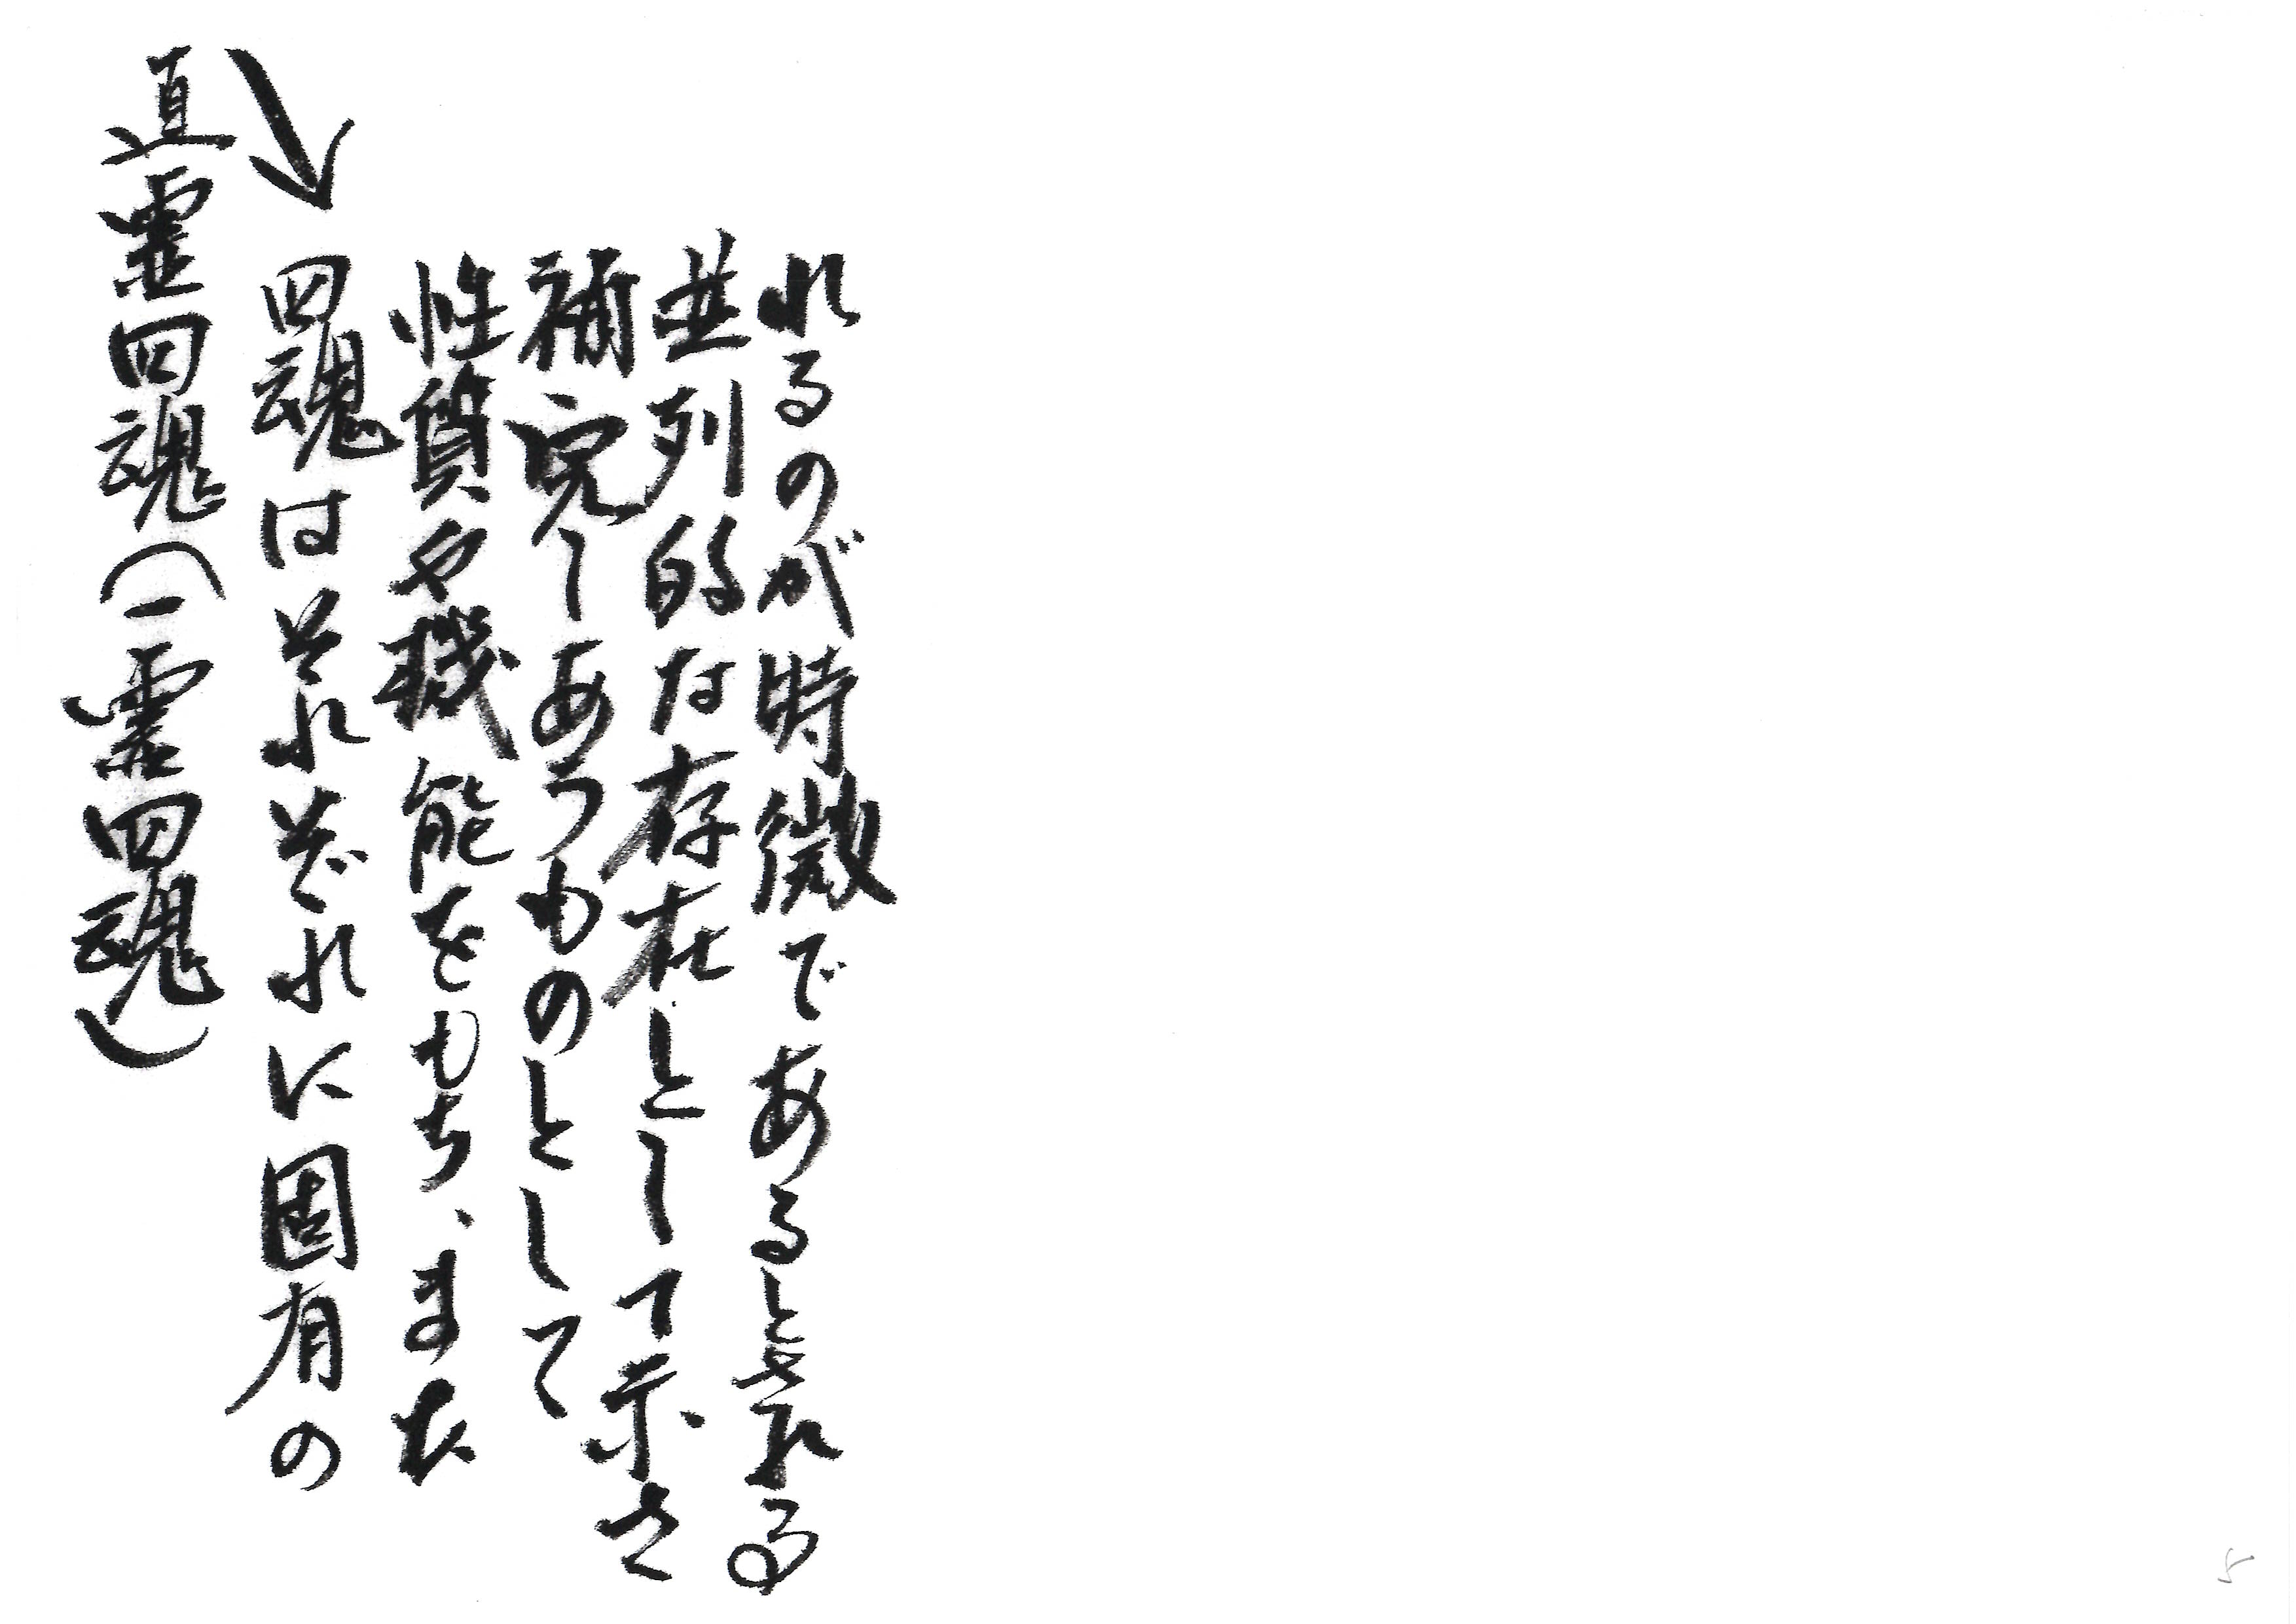 直霊四魂(一霊四魂)
↘四魂はそれぞれに固有の
性質や職能をもち、また
補完しあうものとして
並列的な存在として示さ
れるのが時徴であるとされる。
5